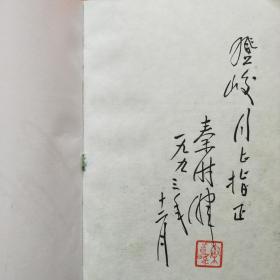 登峻同志指正
秦时健
一九九三年
十二月